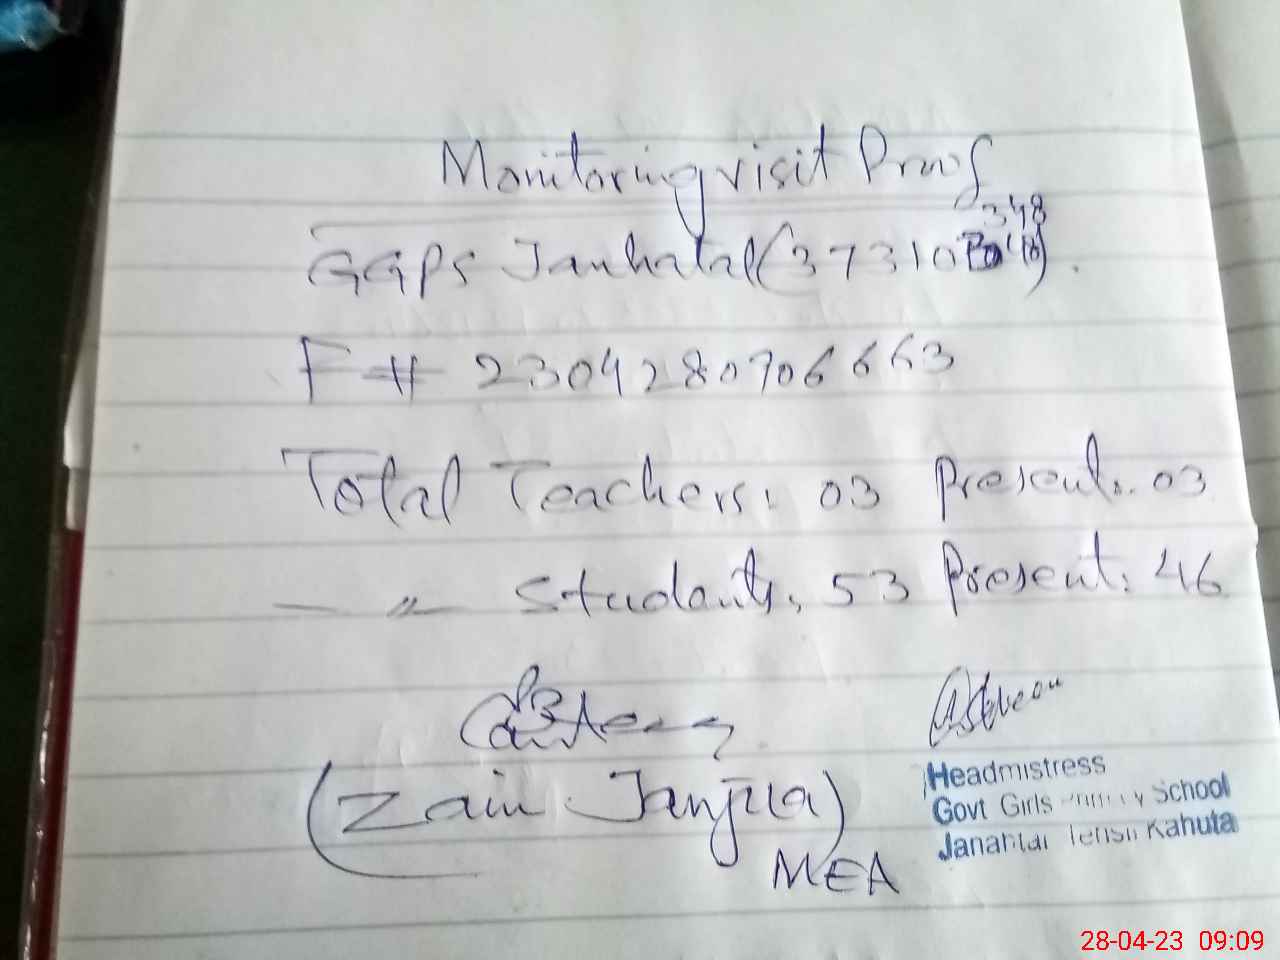 Monitoring visit Proof
GGPS Janhatal (37310348)
F# 2304280706663
Total Teachers: 03 Present: 03
—〃— Students: 53 Present: 46
(Zain Janjua)
MEA
Headmistress
Govt Girls Primary School
Janahtal Tehsil Kahuta
28-04-23 09:09